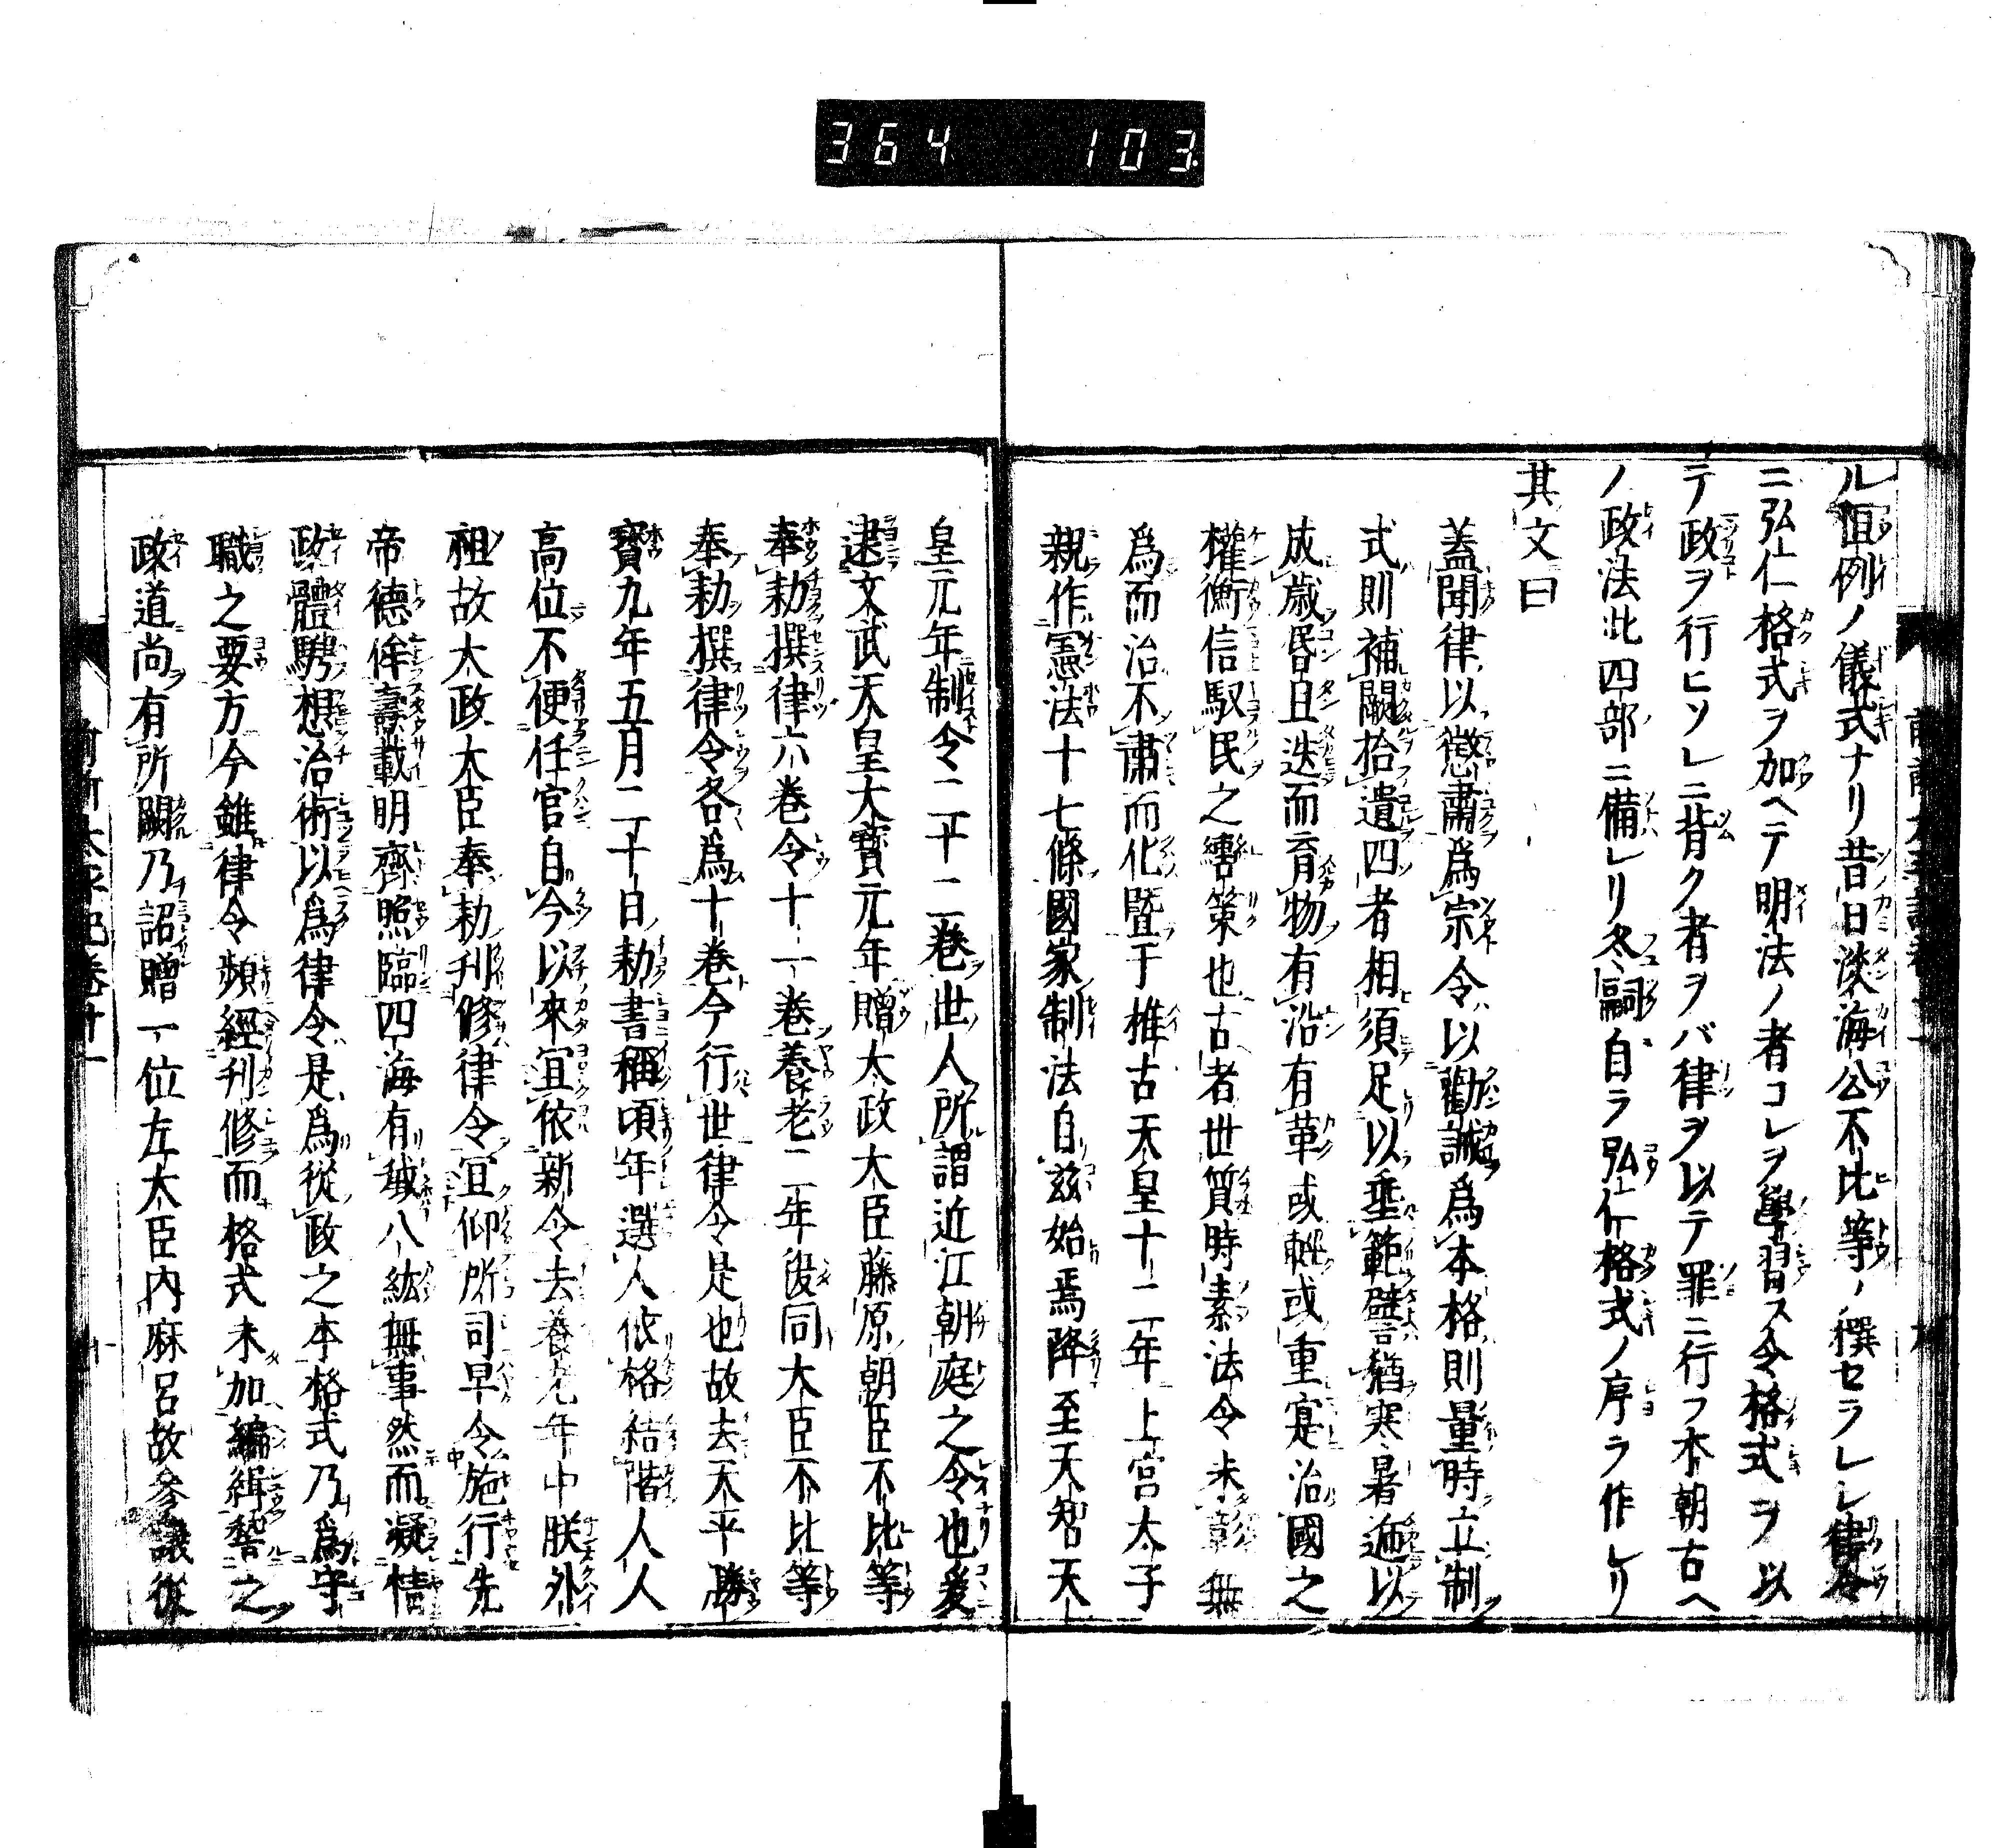 364 103
ル恒例ノ儀式ナリ昔日淡海公不比等ノ撰セラレシ律令
ニ弘仁格式ヲ加ヘテ明法ノ者コレヲ學習ス令格式ヲ以
テ政ヲ行ヒソレニ背ク者ヲバ律ヲ以テ罪ニ行フ本朝古ヘ
ノ政法此四部ニ備レリ冬嗣自ラ弘仁格式ノ序ヲ作レリ
其文曰
蓋聞律以懲肅爲宗令以勸誡爲本格則量時立制
式則補闕拾遺四者相須足以垂範譬猶寒暑遞以
成歳昏旦迭而育物有沿有革或輕或重寔治國之
權衡信馭民之轡策也古者世質時素法令未彰無
爲而治不肅而化曁于推古天皇十二年上宮太子
親作憲法十七條國家制法自兹始焉降至天智天
皇元年制令二十二卷世人所謂近江朝庭之令也爰
逮文武天皇大寶元年贈太政大臣藤原朝臣不比等
奉勅撰律六卷令十一卷養老二年復同大臣不比等
奉勅撰律令各爲十卷今行世律令是也故去天平勝
寶九年五月二十日勅書稱頃年選人依格結階人人
高位不便任官自今以來宜依新令去養老年中朕外
祖故太政大臣奉勅刋修律令宜仰所司早令施行先
帝德侔壽載明齊照臨四海有截八紘無事然而凝情
政體騁想治術以爲律令是爲從政之本格式乃爲守
職之要方今雖律令頻經刋修而格式未加編緝稽之
政道尚有所闕乃詔贈一位左大臣内麻呂故參議從